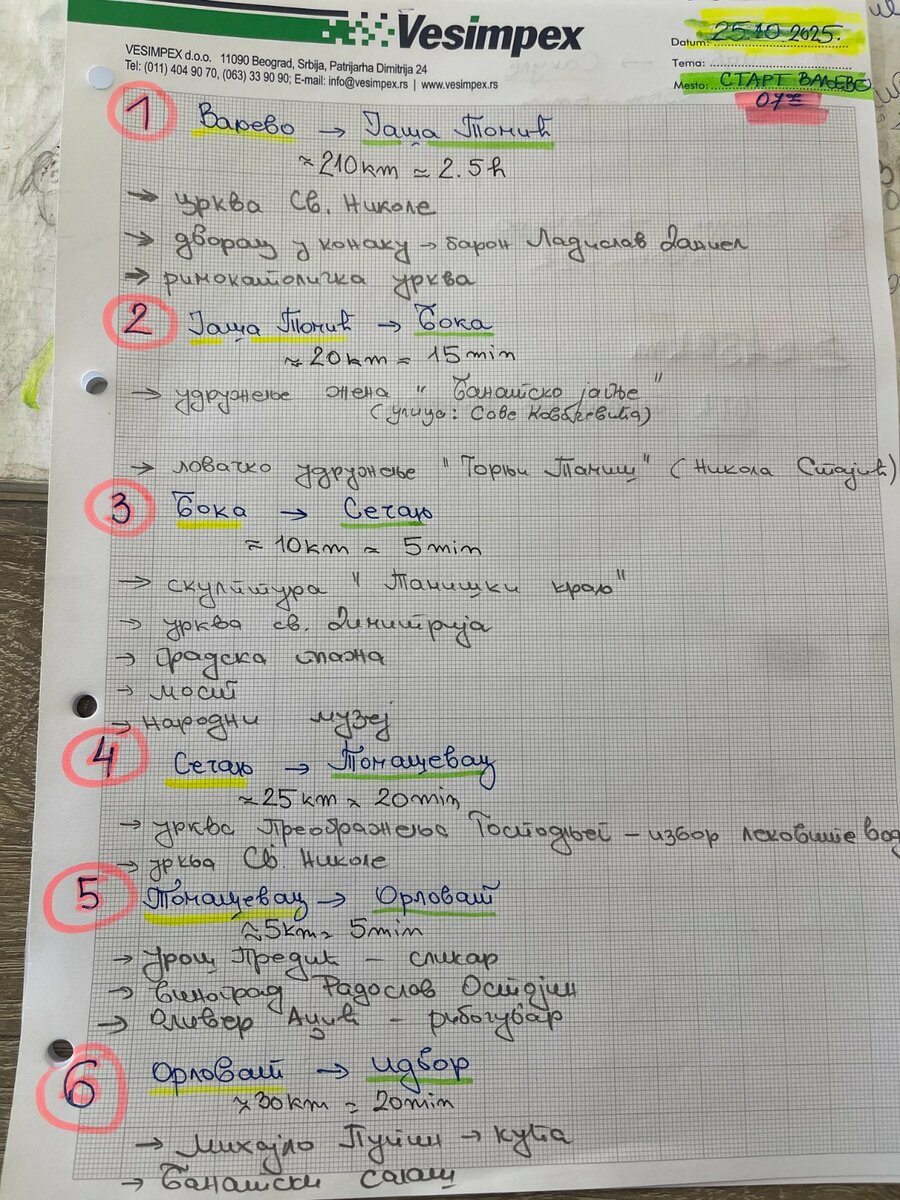 Vesimpex
VESIMPEX d.o.o. 11090 Beograd, Srbija, Patrijarha Dimitrija 24
Tel: (011) 404 90 70, (063) 33 90 90; E-mail: info@vesimpex.rs | www.vesimpex.rs
Datum: 25.10.2025.
Tema:
Mesto: СТАРТ ВАЉЕВО
07
1 Ваљево → Јаша Томић
≈ 210km ≈ 2.5h
→ црква Св. Николе
→ дворац у конаку → барон Ладислав Даниел
→ римокатоличка црква
2 Јаша Томић → Бока
≈ 20km = 15min
→ удружење жена " Банатско јање "
(улица: Саве Ковачевића)
→ ловачко удружење " Горњи Тамиш " (Никола Стојић)
3 Бока → Сечањ
≈ 10km ≈ 5min
→ скулптура " Тамишки краљ "
→ црква св. Димитрија
→ градска плажа
→ мост
→ народни музеј
4 Сечањ → Томашевац
≈ 25km ≈ 20min
→ црква Преображења Господњег – извор лековите вод
→ црква Св. Николе
5 Томашевац → Орловат
≈ 5km ≈ 5min
→ Урош Предић – сликар
→ виноград Радослав Остојин
→ Оливер – риболовар
6 Орловат → Идвор
≈ 30km = 20min
→ Михајло Пупин → кућа
→ Банатски салаш